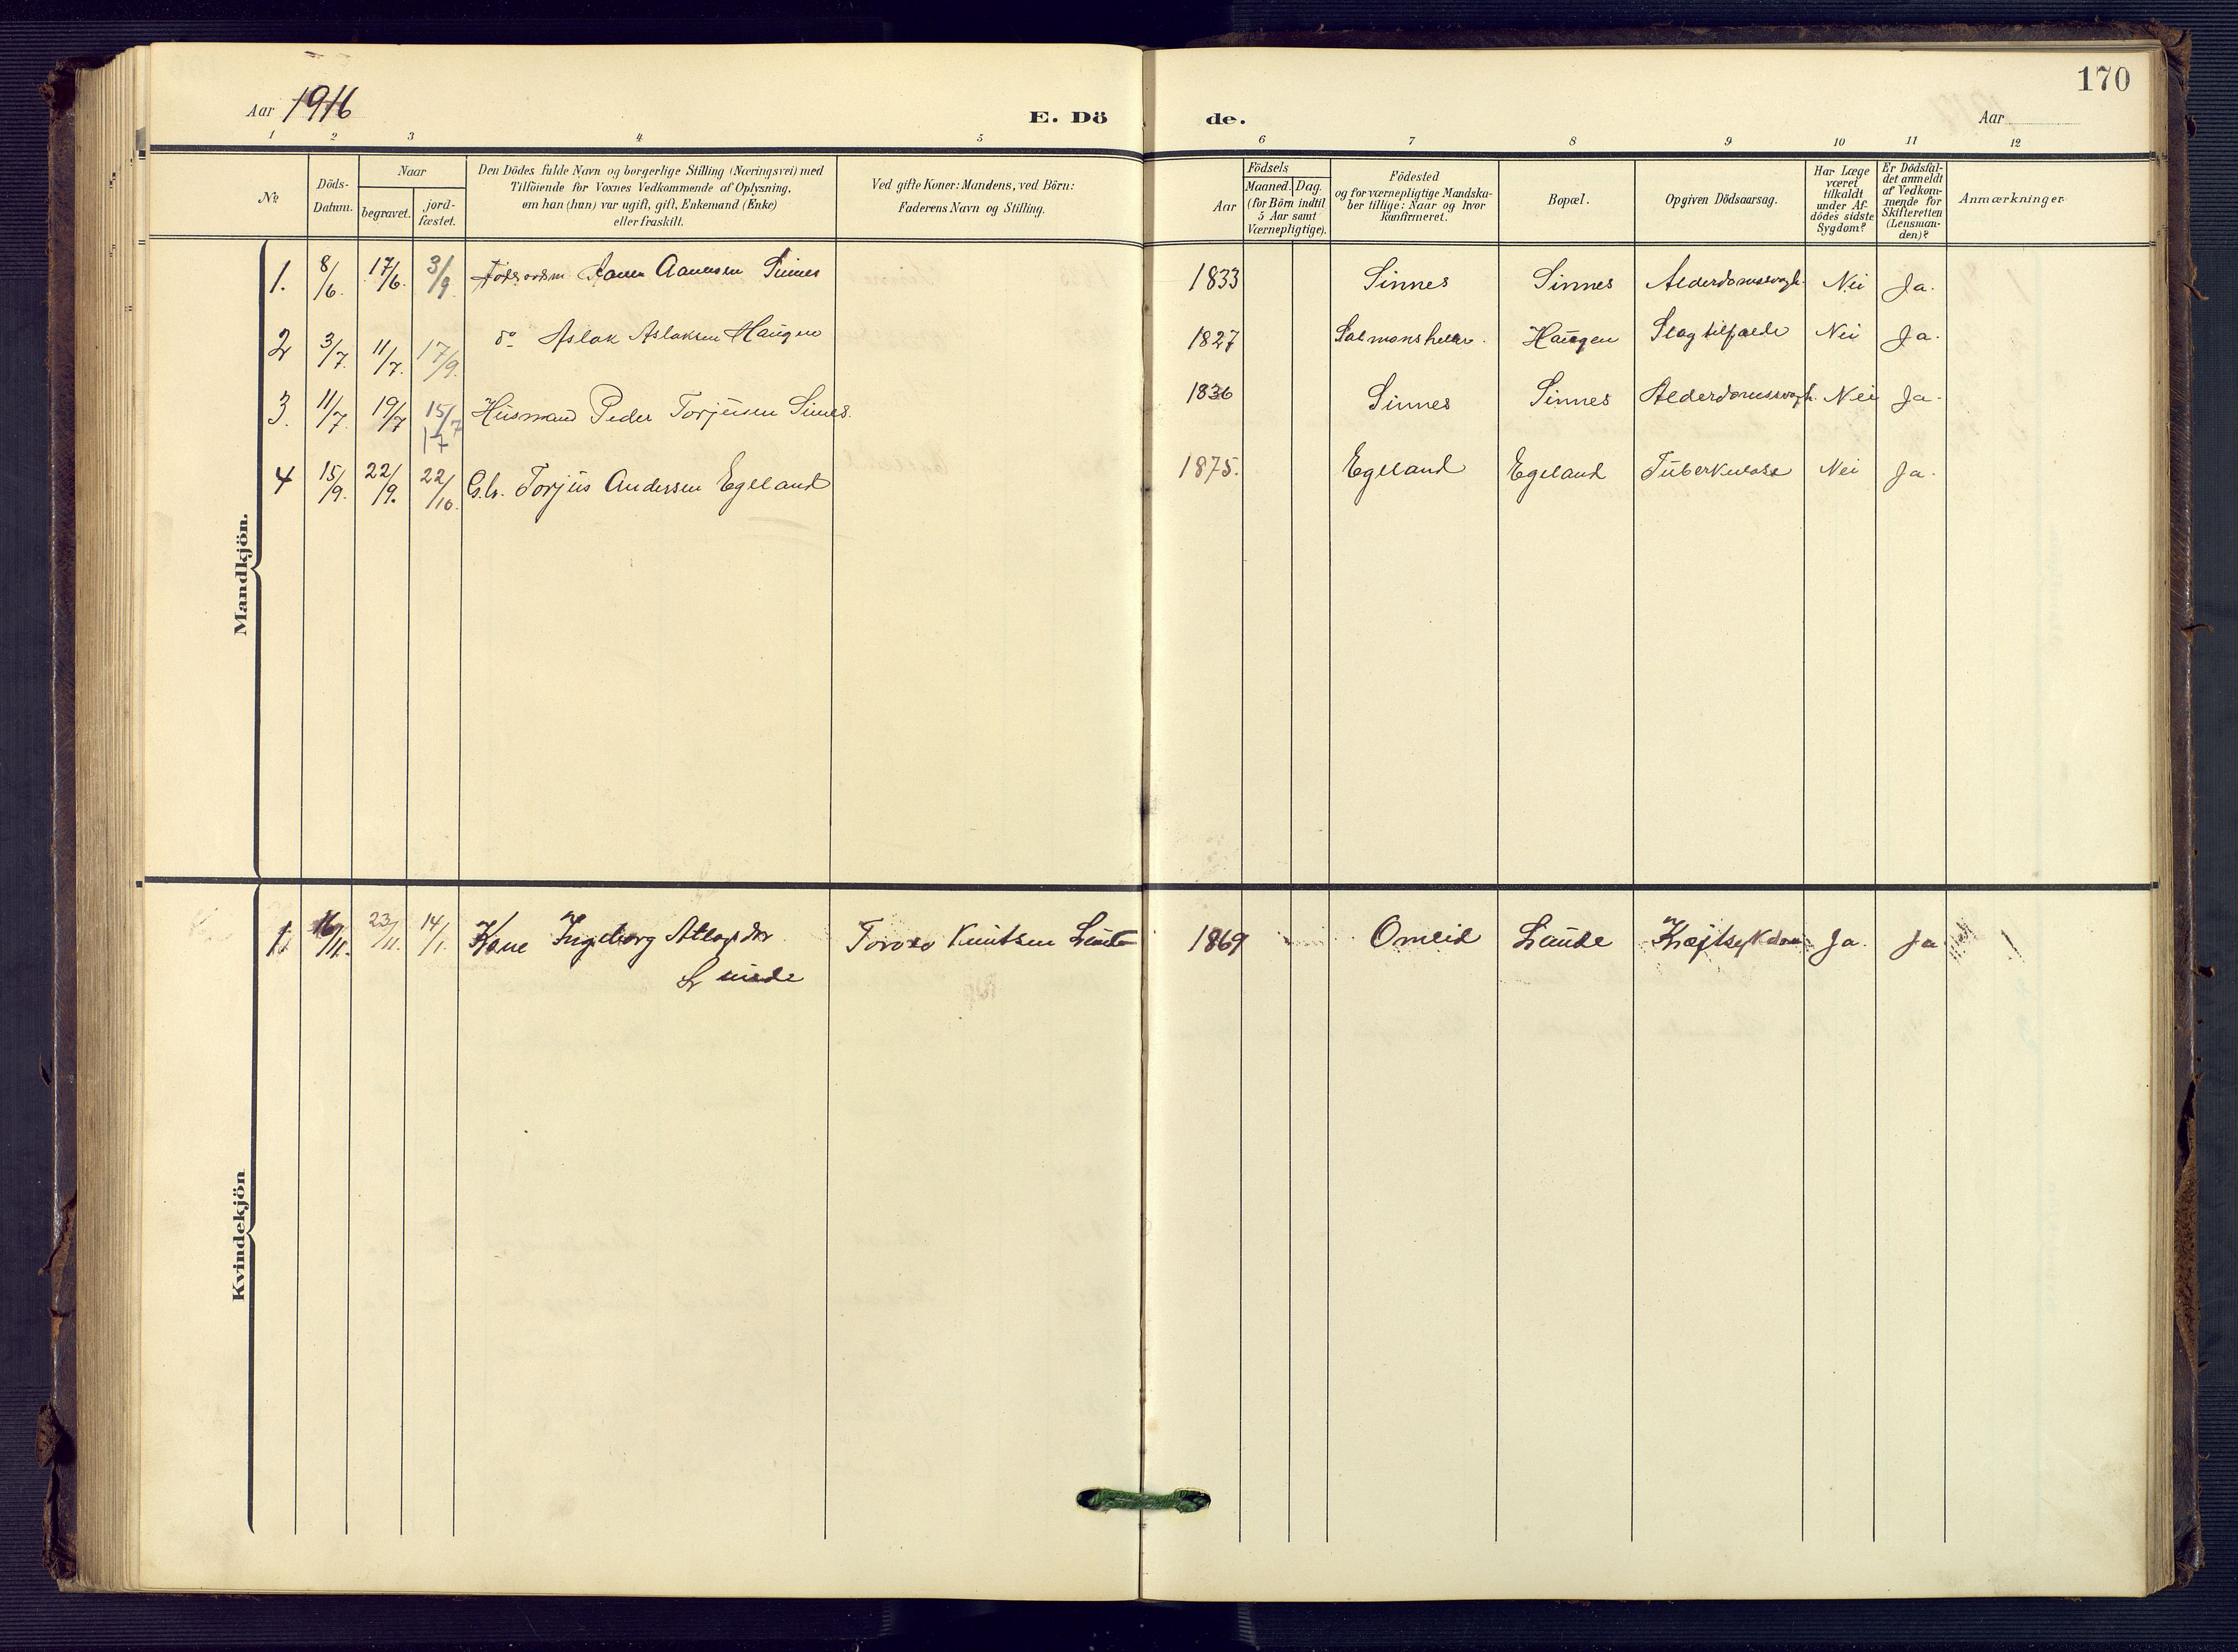 170
Aar 1916
E. Dö
de.
Aar
1 2 3 4 5 6 7 8 9 10 11 12
No
Döds-
Datum.
Naar
begravet.
jord-
fæstet.
Den Dödes fulde Navn og borgerlige Stilling (Næringsvei) med
Tilföiende for Voxnes Vedkommende af Oplysning,
om han (hun) var ugift, gift, Enkemand (Enke)
eller fraskilt.
Ved gifte Koner: Mandens, ved Börn:
Faderens Navn og Stilling.
Födsels
Aar
Maaned. Dag.
(for Börn indtil
5 Aar samt
Værnepligtige).
Födested
og for værnepligtige Mandska-
ber tillige: Naar og hvor
konfirmeret.
Bopæl.
Opgiven Dödsaarsag.
Har Læge
været
tilkaldt
under Af-
dödes sidste
Sygdom?
Er Dödsfal-
det anmeldt
af Vedkom-
mende for
Skifteretten
(Lensman-
den)?
Anmærkninger
Mandkjön.
1. 8/6. 17/6. 3/9. Aanensen Sinnes 1833 Sinnes Sinnes Alderdomssvagh. Nei Ja.
2 3/7. 11/7. 17/9. do Aslak Aslaksen Haugen 1827 Haugen Slagtilfælde Nei Ja.
3. 11/7. 19/7 15/7 17 Husmand Peder Torjusen Sinnes. 1836 Sinnes Sinnes Alderdomssvagh. Nei Ja.
4 15/9. 22/9. 22/10. G.br. Torjus Andersen Egeland 1875. Egeland Egeland Tuberkulose Nei Ja.
Kvindekjön
1. 16/11. 23/11. 14/1. Kone Ingeborg Knutsen Lunde 1869 Omlid Lunde Kræftsykdom Ja. Ja.
Lunde